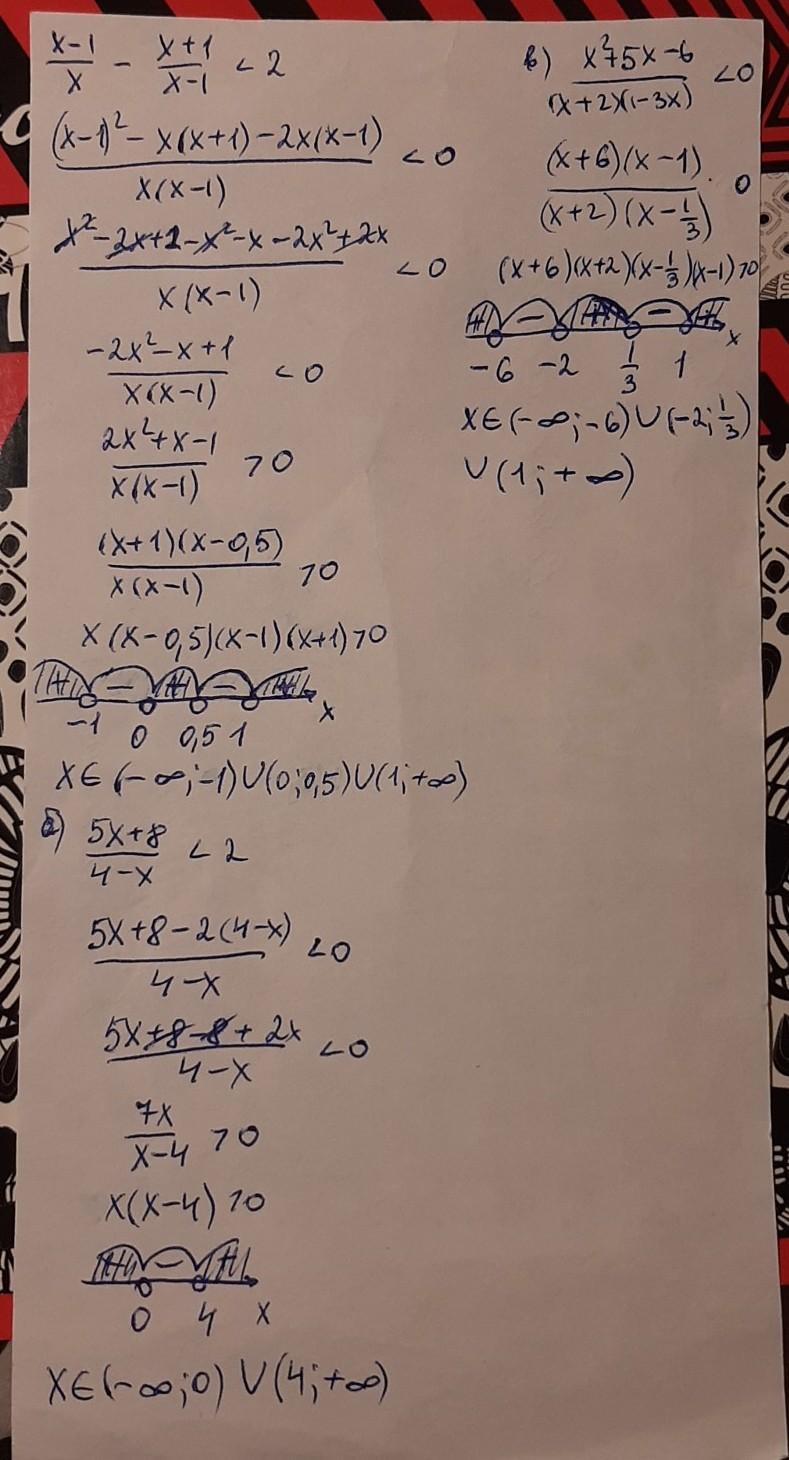 x-1/x - x+1/x-1 < 2
(x-1)² - x(x+1) - 2x(x-1) / x(x-1) < 0
x² - 2x + 1 - x² - x - 2x² + 2x / x(x-1) < 0
-2x² - x + 1 / x(x-1) < 0
2x² + x - 1 / x(x-1) > 0
(x+1)(x-0,5) / x(x-1) > 0
x(x-0,5)(x-1)(x+1) > 0
- -
-1 0 0,5 1 x
x∈(-∞;-1)∪(0;0,5)∪(1;+∞)
б) 5x+8 / 4-x < 2
5x+8-2(4-x) / 4-x < 0
5x+8-8+2x / 4-x < 0
7x / x-4 > 0
x(x-4) > 0
-
0 4 x
x∈(-∞;0)∪(4;+∞)
в) x²+5x-6 / (x+2)(1-3x) < 0
(x+6)(x-1) / (x+2)(x-1/3) 0
(x+6)(x+2)(x-1/3)(x-1) > 0
- -
-6 -2 1/3 1 x
x∈(-∞;-6)∪(-2;1/3)
∪(1;+∞)